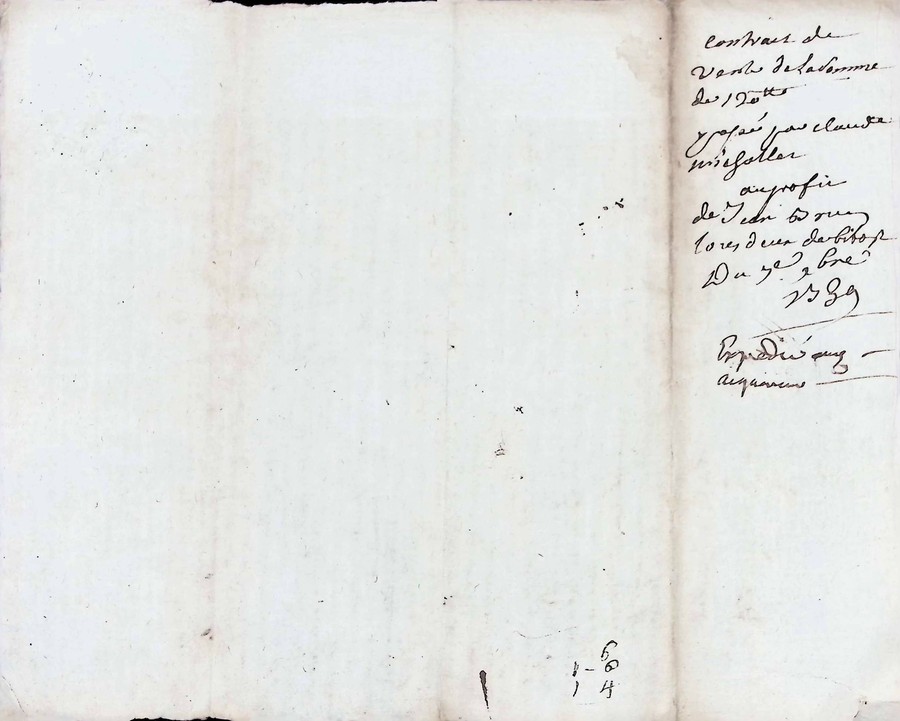 contract de
vente de la somme
de 120tt
passé par claude
michallet
au profit
de Jean Brun
Du 7e 9bre
1789
Expedié aux
acquereurs
6
1 - 6
1 4